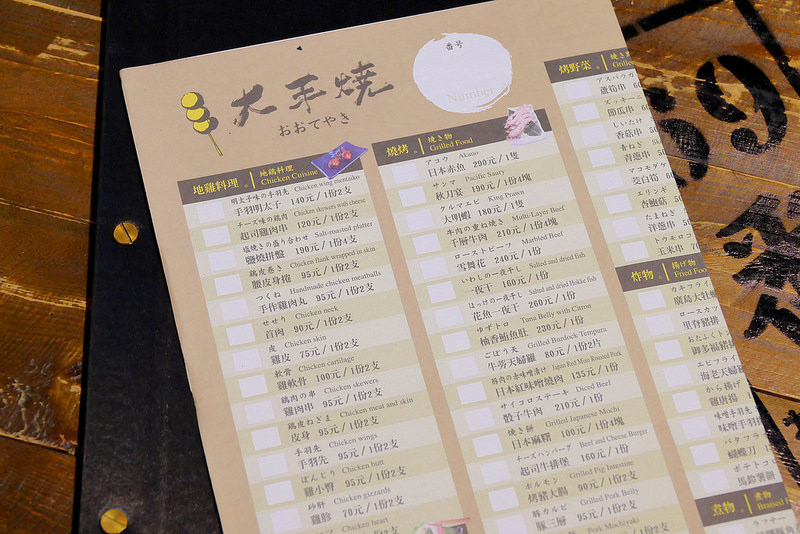 大手燒
おおてやき
番号
Number
地雞料理。
地鶏料理
Chicken Cuisine
明太子味の手羽先 Chicken wing mentaiko
手羽明太子 140元/1份2支
チーズ味の鶏肉 Chicken skewers with cheese
起司雞肉串 120元/1份2支
塩焼きの盛り合わせ Salt-roasted platter
鹽燒拼盤 190元/1份4支
鶏皮巻き Chicken flank wrapped in skin
腰皮身捲 95元/1份2支
つくね Handmade chicken meatballs
手作雞肉丸 95元/1份2支
せせり Chicken neck
首肉 90元/1份2支
皮 Chicken skin
雞皮 75元/1份2支
軟骨 Chicken cartilage
雞軟骨 100元/1份2支
鶏肉の串 Chicken skewers
雞肉串 95元/1份2支
鶏皮ねぎま Chicken meat and skin
皮身 95元/1份2支
手羽先 Chicken wings
手羽先 95元/1份2支
ぼんじり Chicken butt
雞小臀 95元/1份2支
砂肝 Chicken gizzards
雞胗 70元/1份2支
Chicken heart
燒烤。
焼き物
Grilled Food
アコウ Akauo
日本赤魚 290元/1隻
サンマ Pacific Saury
秋刀宴 190元/1份4塊
クルマエビ King Prawn
大明蝦 180元/1隻
牛肉の重ね焼き Multi-Layer Beef
千層牛肉 210元/1份4塊
ローストビーフ Marbled Beef
雪舞花 240元/1份
いわしの一夜干し Salted and dried fish
一夜干 160元/1份
ほっけの一夜干し Salted and dried Hokke fish
花魚一夜干 260元/1份
ゆずトロ Tuna Belly with Citron
柚香鮪魚肚 230元/1份
ごぼう天 Grilled Burdock Tempura
牛蒡天婦羅 80元/1份2片
豚肉の赤味噌漬け Japan Red Miso Roasted Pork
日本紅味噌燒肉 135元/1份
サイコロステーキ Diced Beef
骰子牛肉 210元/1份
焼き餅 Grilled Japanese Mochi
日本麻糬 100元/1份4塊
チーズハンバーグ Beef and Cheese Burger
起司牛排堡 160元/1份
ホルモン Grilled Pig Intestine
烤豬大腸 90元/1份2支
豚カルビ Grilled Pork Belly
豚三層 95元/1份2支
Pork Mochiyaki
烤野菜。
焼き野
Grilled
アスパラガ
蘆筍串 60
ズッキーニ
節瓜串 6
しいたけ
香菇串 50
青ねぎ
青蔥串 5
マコモダケ
茭白筍
エリンギ
杏鮑菇
たまねぎ
洋蔥串
トウモロコ
玉米串
炸物。
揚げ物
Fried Food
カキフライ
廣島大牡蠣
ロースカツ
里脊豬排
おたふくトコ
御多福豬排
エビフライ
海老天婦羅
から揚げ
雞唐揚
味噌手羽
味噌手羽
バタフラ
蝴蝶刀
ポテトコ
馬鈴薯餅
煮物。
煮物
Braised